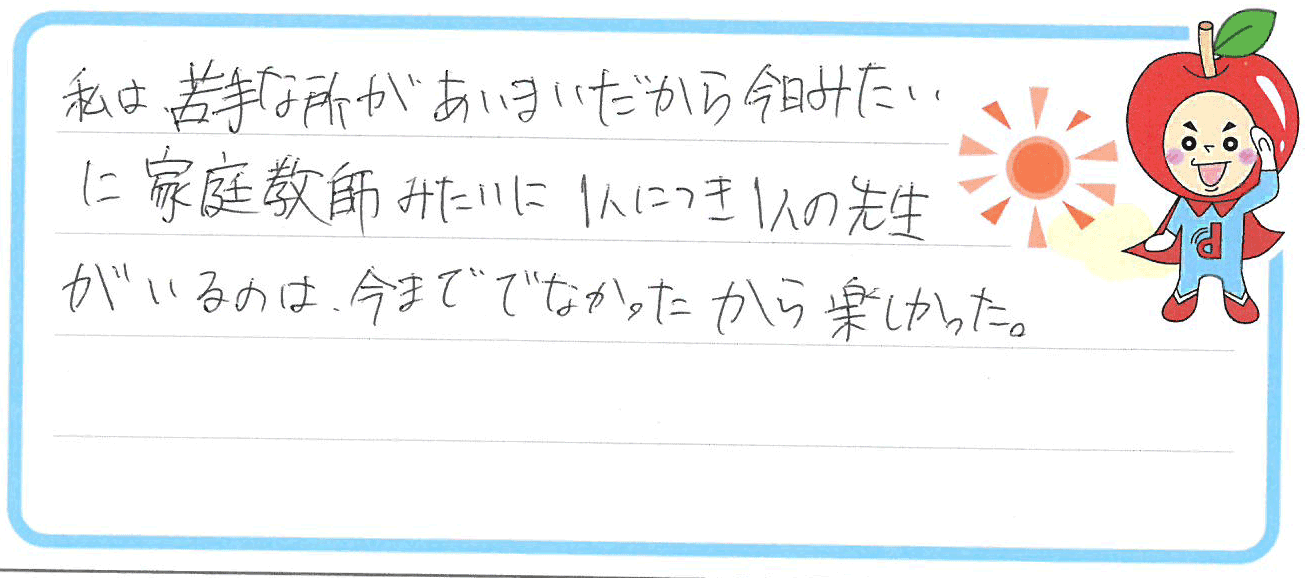 私は、苦手な所があいまいだから今日みたい
に家庭教師みたいに1人につき1人の先生
がいるのは、今まででなかったから楽しかった。